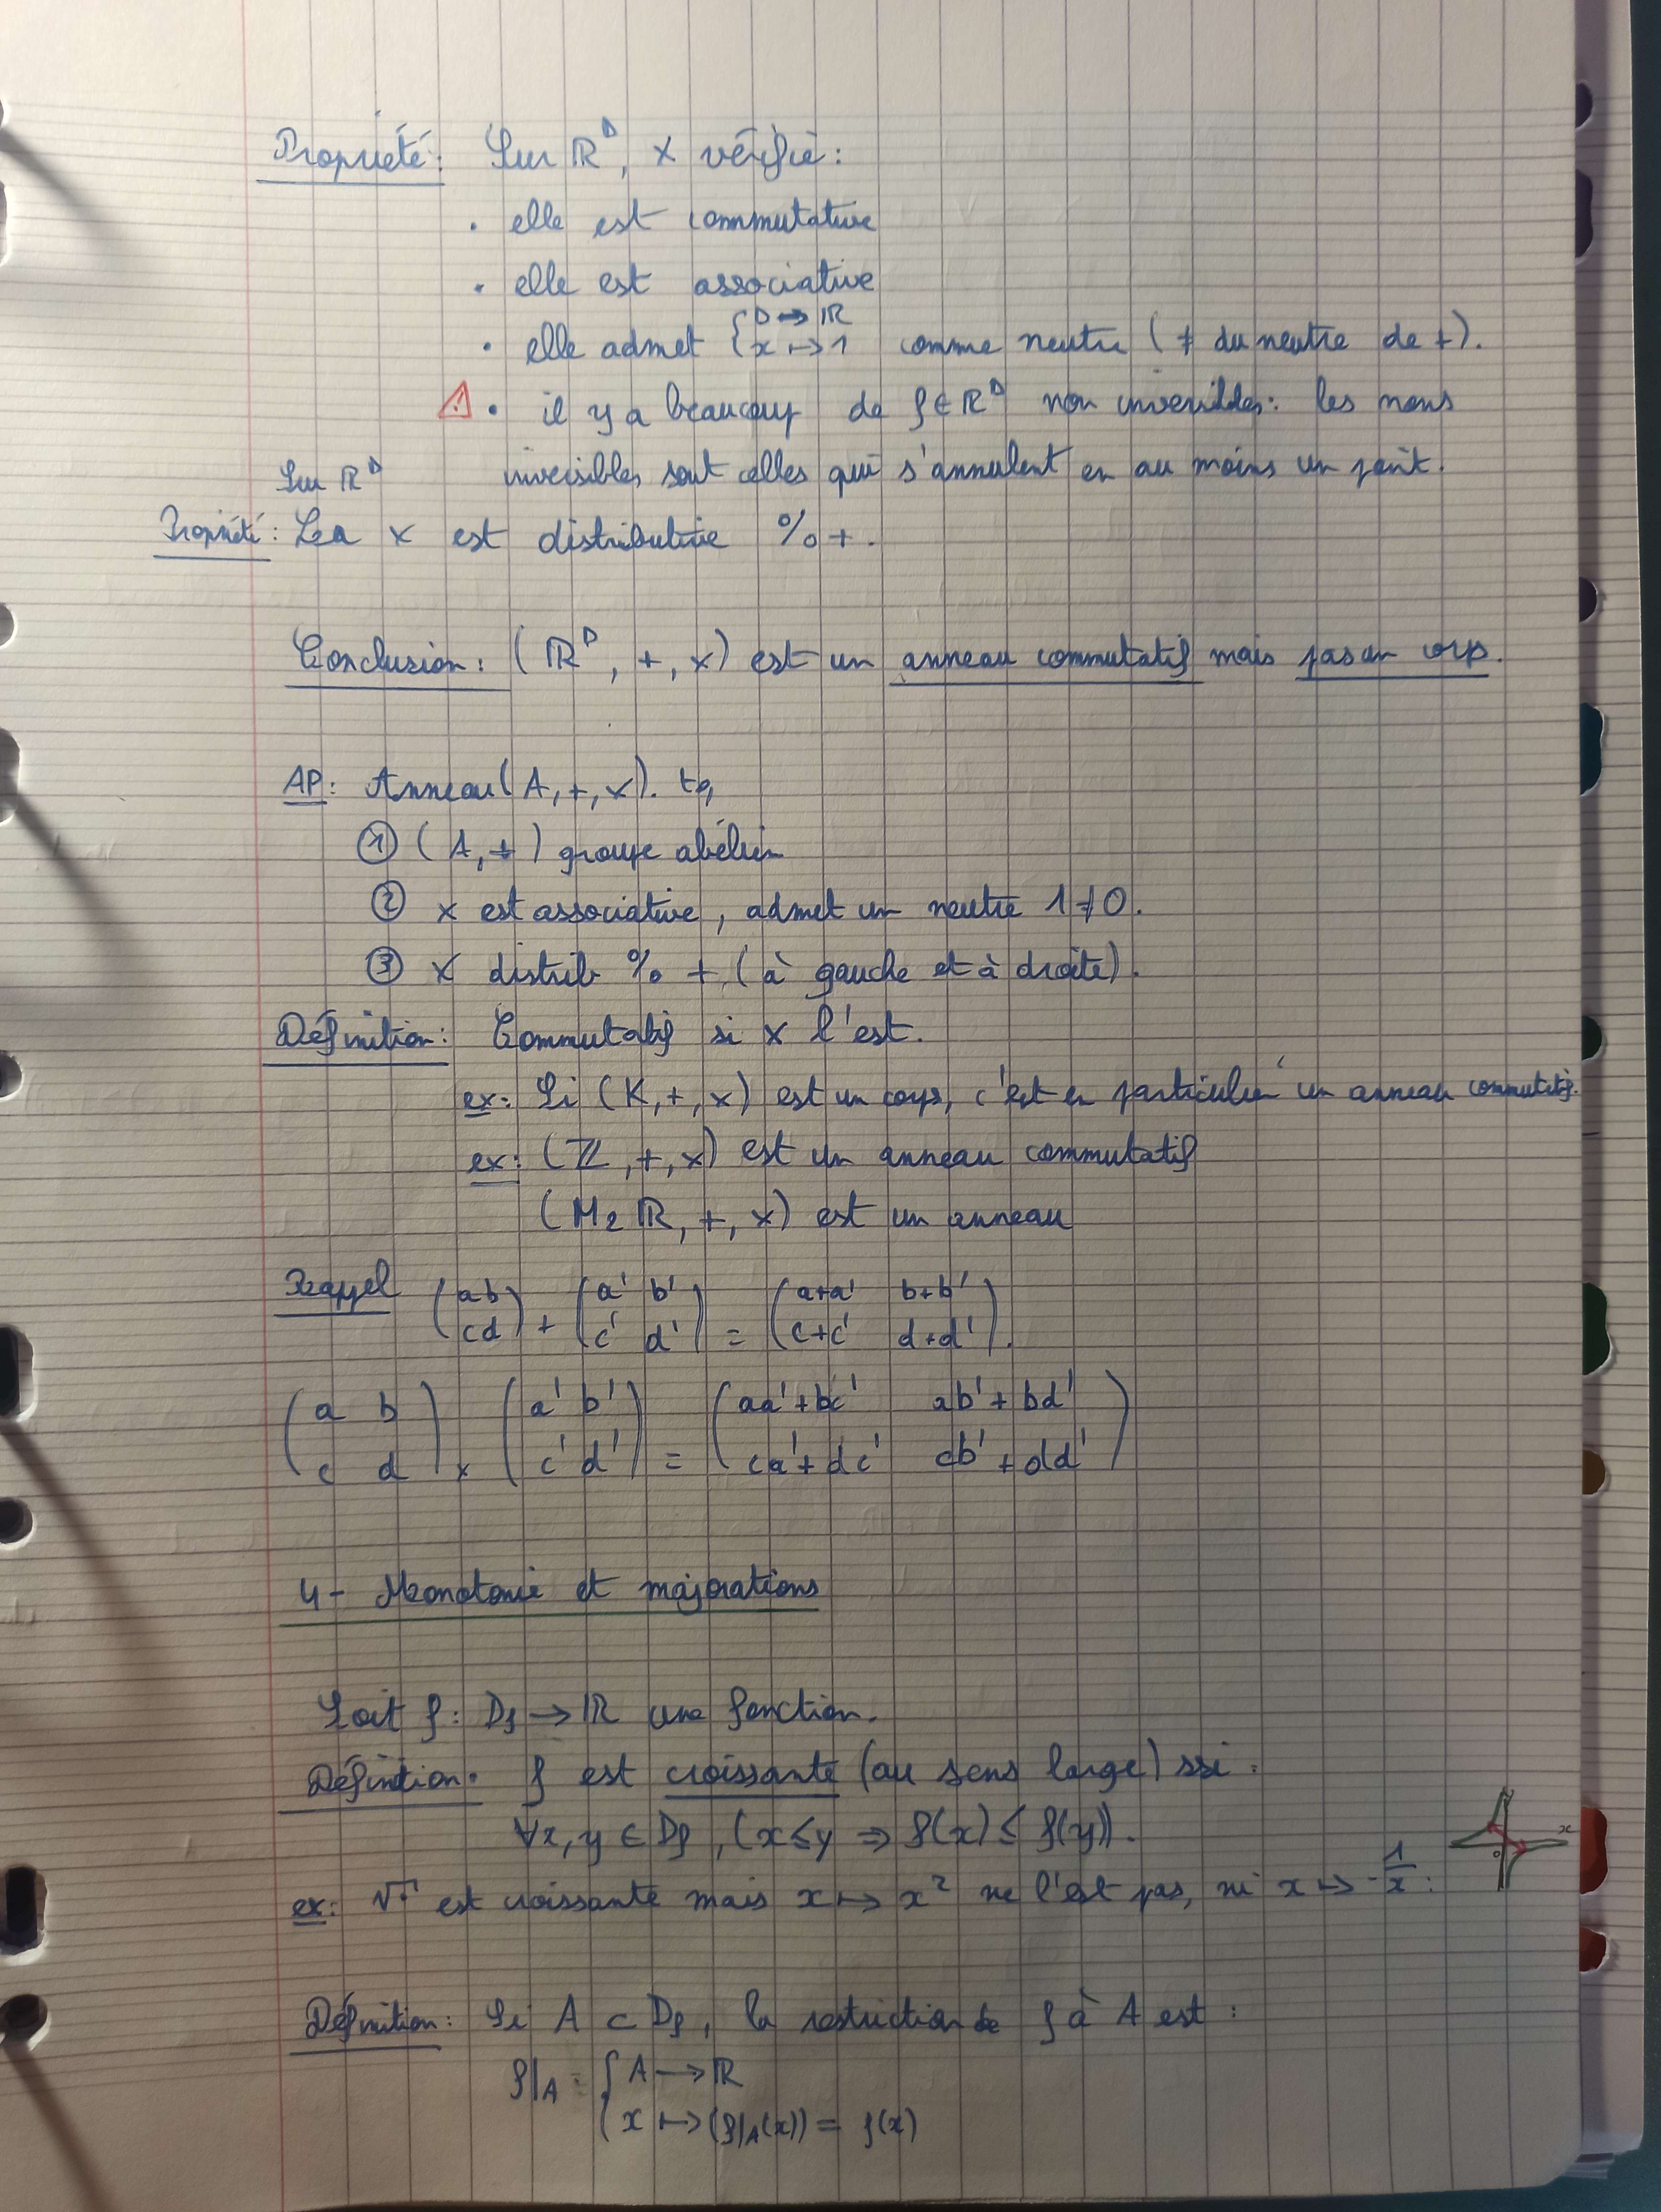 Propriété : Sur ℝᴰ, × vérifie :
• elle est commutative
• elle est associative
• elle admet { D → ℝ
x ↦ 1 comme neutre (≠ du neutre de +).
⚠ • il y a beaucoup de f ∈ ℝᴰ non inversibles : les nons
inversibles sont celles qui s'annulent en au moins un point.
Sur ℝᴰ
Propriété : × est distributive % +.
Conclusion : (ℝᴰ, +, ×) est un anneau commutatif mais pas un corps.
AP : Anneau (A, +, ×). tq
① (A, +) groupe abélien
② × est associative, admet un neutre 1 ≠ 0.
③ × distrib % + (à gauche et à droite).
Définition : Commutatif si × l'est.
ex : Si (K, +, ×) est un corps, c'est en particulier un anneau commutatif.
ex : (ℤ, +, ×) est un anneau commutatif
(M₂ ℝ, +, ×) est un anneau
Rappel (a b
c d) + (a' b'
c' d') = (a+a' b+b'
c+c' d+d').
(a b
c d) × (a' b'
c' d') = (aa'+bc' ab'+bd'
ca'+dc' cb'+dd')
4 - Monotonie et majorations
Soit f : Df → ℝ une fonction.
Définition • f est croissante (au sens large) ssi :
∀x, y ∈ Df, (x ≤ y ⇒ f(x) ≤ f(y)).
ex : √· est croissante mais x ↦ x² ne l'est pas, ni x ↦ -1/x :
x
0
Définition : Si A ⊂ Df, la restriction de f à A est :
f|A = { A → ℝ
x ↦ (f|A(x)) = f(x)